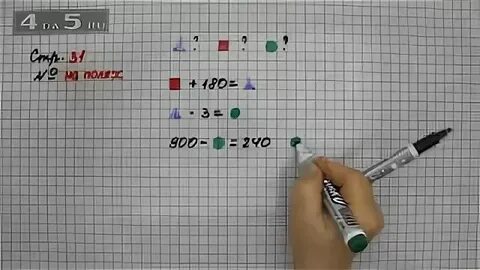 4 DA 5 RU
Стр. 31
№ на полях
? ? ?
+ 180 =
· 3 =
900 - = 240